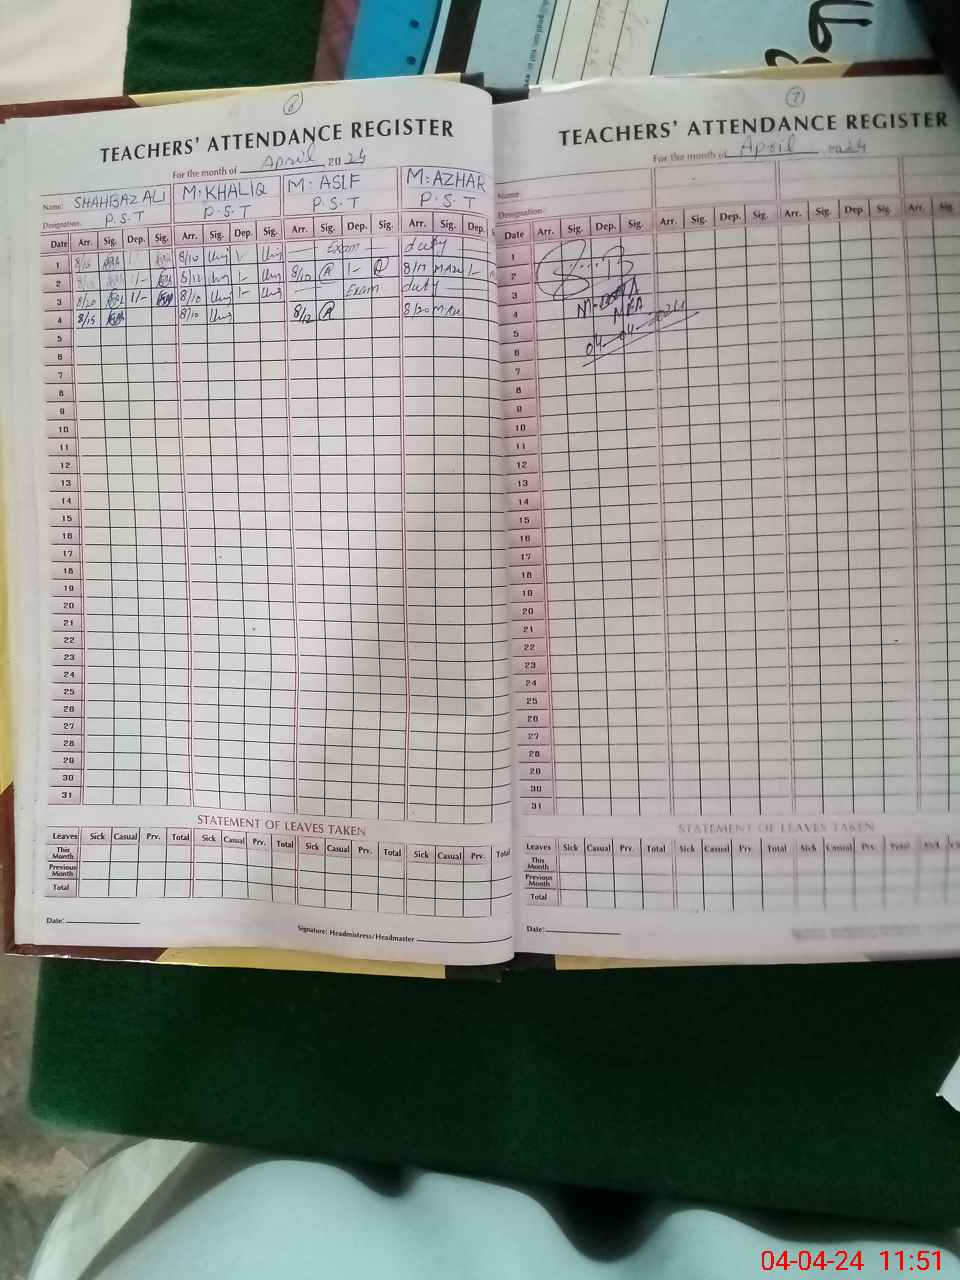 6
TEACHERS' ATTENDANCE REGISTER
For the month of April 2024
Name: SHAHBAZ ALI M. KHALIQ M. ASIF M. AZHAR
Designation: P.S.T P.S.T P.S.T P.S.T
Date Arr. Sig. Dep. Sig. Arr. Sig. Dep. Sig. Arr. Sig. Dep. Sig. Arr. Sig. Dep.
1 8/15 8/10 Exam duty
2 1/- 8/12 1- 8/10 1- 8/17 1-
3 8/20 1/- 8/10 1- Exam duty
4 8/15 8/10 8/12 8/20
5
6
7
8
9
10
11
12
13
14
15
16
17
18
19
20
21
22
23
24
25
26
27
28
29
30
31
STATEMENT OF LEAVES TAKEN
Leaves Sick Casual Prv. Total Sick Casual Prv. Total Sick Casual Prv. Total Sick Casual Prv. Total
This Month
Previous Month
Total
Date:
Signature: Headmistress/Headmaster
7
TEACHERS' ATTENDANCE REGISTER
For the month of April 2024
Name:
Designation:
Date Arr. Sig. Dep. Sig. Arr. Sig. Dep. Sig. Arr. Sig. Dep. Sig. Arr. Sig.
1
2
3
4 MEA
5 04-04-2024
6
7
8
9
10
11
12
13
14
15
16
17
18
19
20
21
22
23
24
25
26
27
28
29
30
31
STATEMENT OF LEAVES TAKEN
Leaves Sick Casual Prv. Total Sick Casual Prv. Total Sick Casual Prv. Total Sick
This Month
Previous Month
Total
Date:
04-04-24 11:51